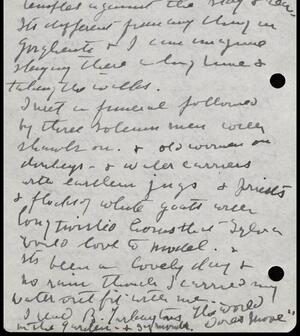 temples against the sky & sea.
Its different from any thing in
Girghente & I can imagine
staying there a long time &
taking the walks.
I met a funeral followed
by three solemn men with
shawls on. & old women on
donkeys - & water carriers
with earthern jugs & priests
& flocks of white goats with
long twisted horns that Sylvia
would love to model. &
Its been a lovely day &
no rain though I carried my
water outfit with me -
I read B. the world
in the garden - & "Does move"